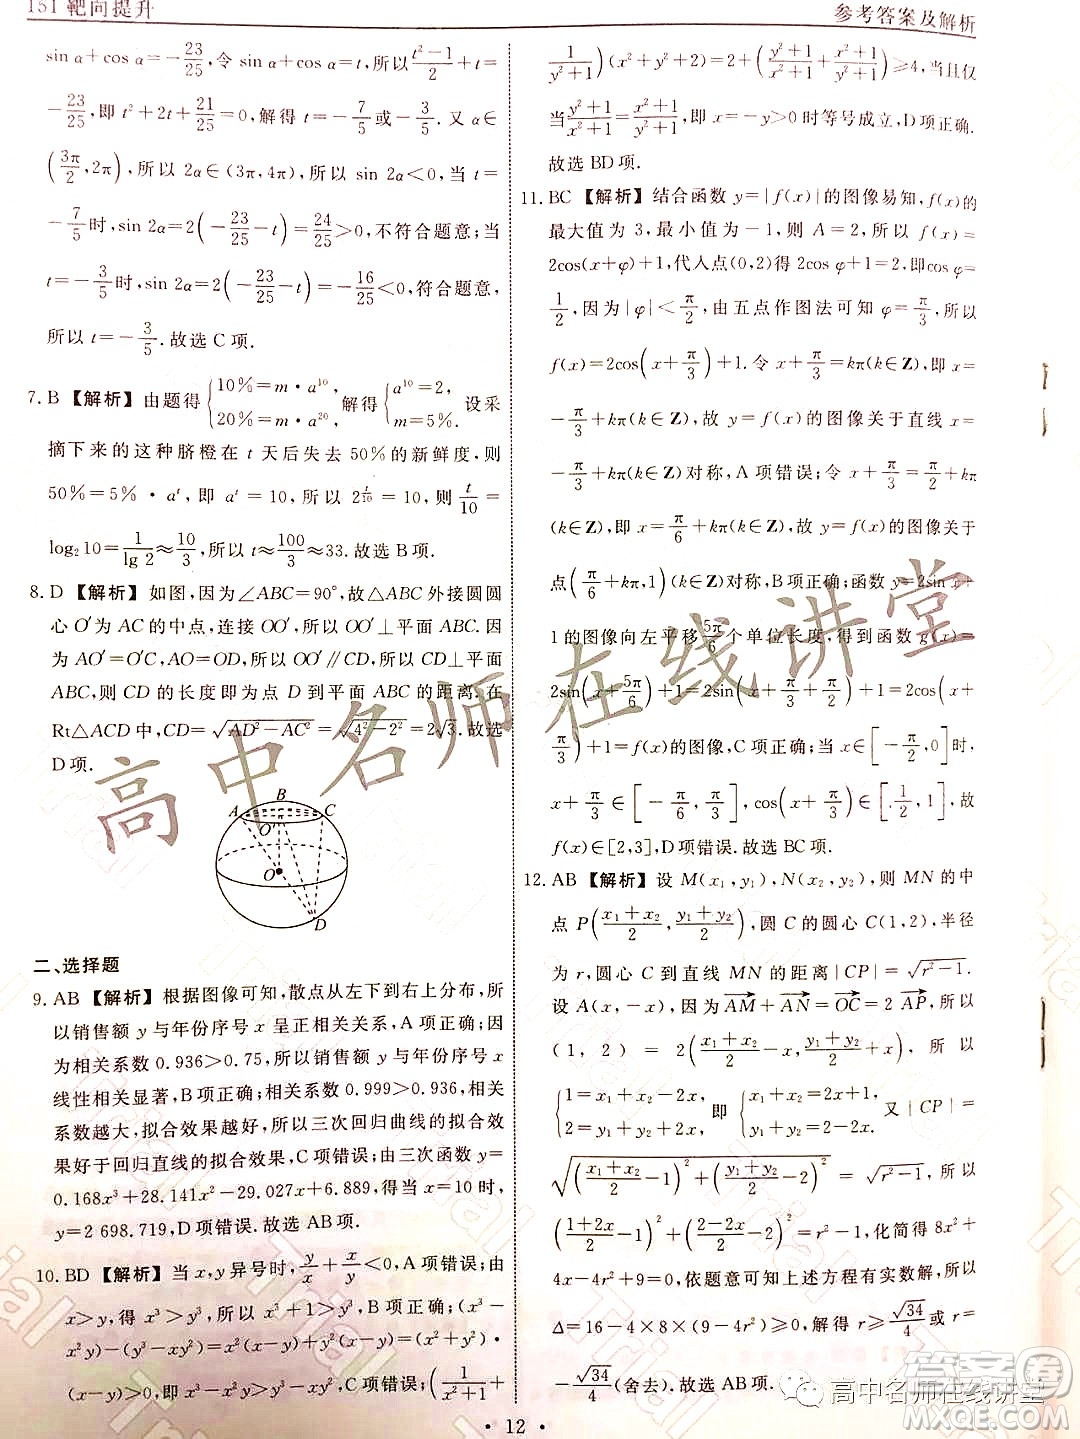 151 靶向提升
参考答案及解析
sin α+cos α=-23/25,令 sin α+cos α=t,所以(t²-1)/2+t=
-23/25,即 t²+2t+21/25=0,解得 t=-7/5或-3/5.又 α∈
(3π/2,2π),所以 2α∈(3π,4π),所以 sin 2α<0,当 t=
-7/5时,sin 2α=2(-23/25-t)=24/25>0,不符合题意;当
t=-3/5时,sin 2α=2(-23/25-t)=-16/25<0,符合题意,
所以 t=-3/5.故选 C 项.
7. B 【解析】由题得{10%=m·a¹⁰, 20%=m·a²⁰, 解得{a¹⁰=2, m=5%. 设采
摘下来的这种脐橙在 t 天后失去 50%的新鲜度,则
50%=5%·aᵗ,即 aᵗ=10,所以 2^(t/10)=10,则 t/10=
log₂10=1/lg 2≈10/3,所以 t≈100/3≈33.故选 B 项.
8. D 【解析】如图,因为∠ABC=90°,故△ABC 外接圆圆
心 O′为 AC 的中点,连接 OO′,所以 OO′⊥平面 ABC.因
为 AO′=O′C,AO=OD,所以 OO′∥CD,故 CD⊥平面
ABC,则 CD 的长度即为点 D 到平面 ABC 的距离.在
Rt△ACD 中,CD=√(AD²-AC²)=√(4²-2²)=2√3.故选
D 项.
B
A
C
O′
O
D
二、选择题
9. AB 【解析】根据图像可知,散点从左下到右上分布,所
以销售额 y 与年份序号 x 呈正相关关系,A 项正确;因
为相关系数 0.936>0.75,所以销售额 y 与年份序号 x
线性相关显著,B 项正确;相关系数 0.999>0.936,相关
系数越大,拟合效果越好,所以三次回归曲线的拟合效
果好于回归直线的拟合效果,C 项错误;由三次函数 y=
0.168x³+28.141x²-29.027x+6.889,得当 x=10 时,
y=2 698.719,D 项错误.故选 AB 项.
10. BD 【解析】当 x,y 异号时,y/x+x/y<0,A 项错误;由
x>y,得 x³>y³,所以 x³+1>y³,B 项正确;(x²+y²)·
(x-y)-(x²-y²)(x+y)=(x-y)[(x²+y²)-(x+y)²]=
-2xy(x-y),C 项错误;(1/(x²+1)+
1/(y²+1))(x²+y²+2)=2+((y²+1)/(x²+1)+(x²+1)/(y²+1))≥4,当且仅
当(y²+1)/(x²+1)=(x²+1)/(y²+1),即 x=-y>0 时等号成立,D 项正确.
故选 BD 项.
11. BC 【解析】结合函数 y=|f(x)|的图像易知,f(x)的
最大值为 3,最小值为-1,则 A=2,所以 f(x)=
2cos(x+φ)+1,代入点(0,2),得 2cos φ+1=2,即cos φ=
1/2,因为|φ|<π/2,由五点作图法可知 φ=π/3,所以
f(x)=2cos(x+π/3)+1.令 x+π/3=kπ(k∈Z),即 x=
-π/3+kπ(k∈Z),故 y=f(x)的图像关于直线 x=
-π/3+kπ(k∈Z)对称,A 项错误;令 x+π/3=π/2+kπ
(k∈Z),即 x=π/6+kπ(k∈Z),故 y=f(x)的图像关于
点(π/6+kπ,1)(k∈Z)对称,B 项正确;函数 y=2sin x+
1 的图像向左平移5π/6个单位长度,得到函数 g(x)=
2sin(x+5π/6)+1=2sin(x+π/3+π/2)+1=2cos(x+
π/3)+1=f(x)的图像,C 项正确;当 x∈[-π/2,0]时,
x+π/3∈[-π/6,π/3],cos(x+π/3)∈[1/2,1],故
f(x)∈[2,3],D 项错误.故选 BC 项.
12. AB 【解析】设 M(x₁,y₁),N(x₂,y₂),则 MN 的中
点 P((x₁+x₂)/2,(y₁+y₂)/2),圆 C 的圆心 C(1,2),半径
为 r,圆心 C 到直线 MN 的距离|CP|=√(r²-1).
设 A(x,-x),因为AM+AN=OC=2 AP,所以
(1,2)=2((x₁+x₂)/2-x,(y₁+y₂)/2+x),所以
{1=x₁+x₂-2x, 2=y₁+y₂+2x, 即{x₁+x₂=1+2x, y₁+y₂=2-2x. 又|CP|=
√(((x₁+x₂)/2-1)²+((y₁+y₂)/2-2)²)=√(r²-1),所以
((1+2x)/2-1)²+((2-2x)/2-2)²=r²-1,化简得 8x²+
4x+9-4r²=0,依题意可知上述方程有实数解,所以
Δ=16-4×8×(9-4r²)≥0,所以 r≥√34/4或 r≤
-√34/4(舍去).故选 AB 项.
· 12 ·
高中名师在线讲堂
Trial
高中名师在线讲堂
答案圈
MXQE.COM